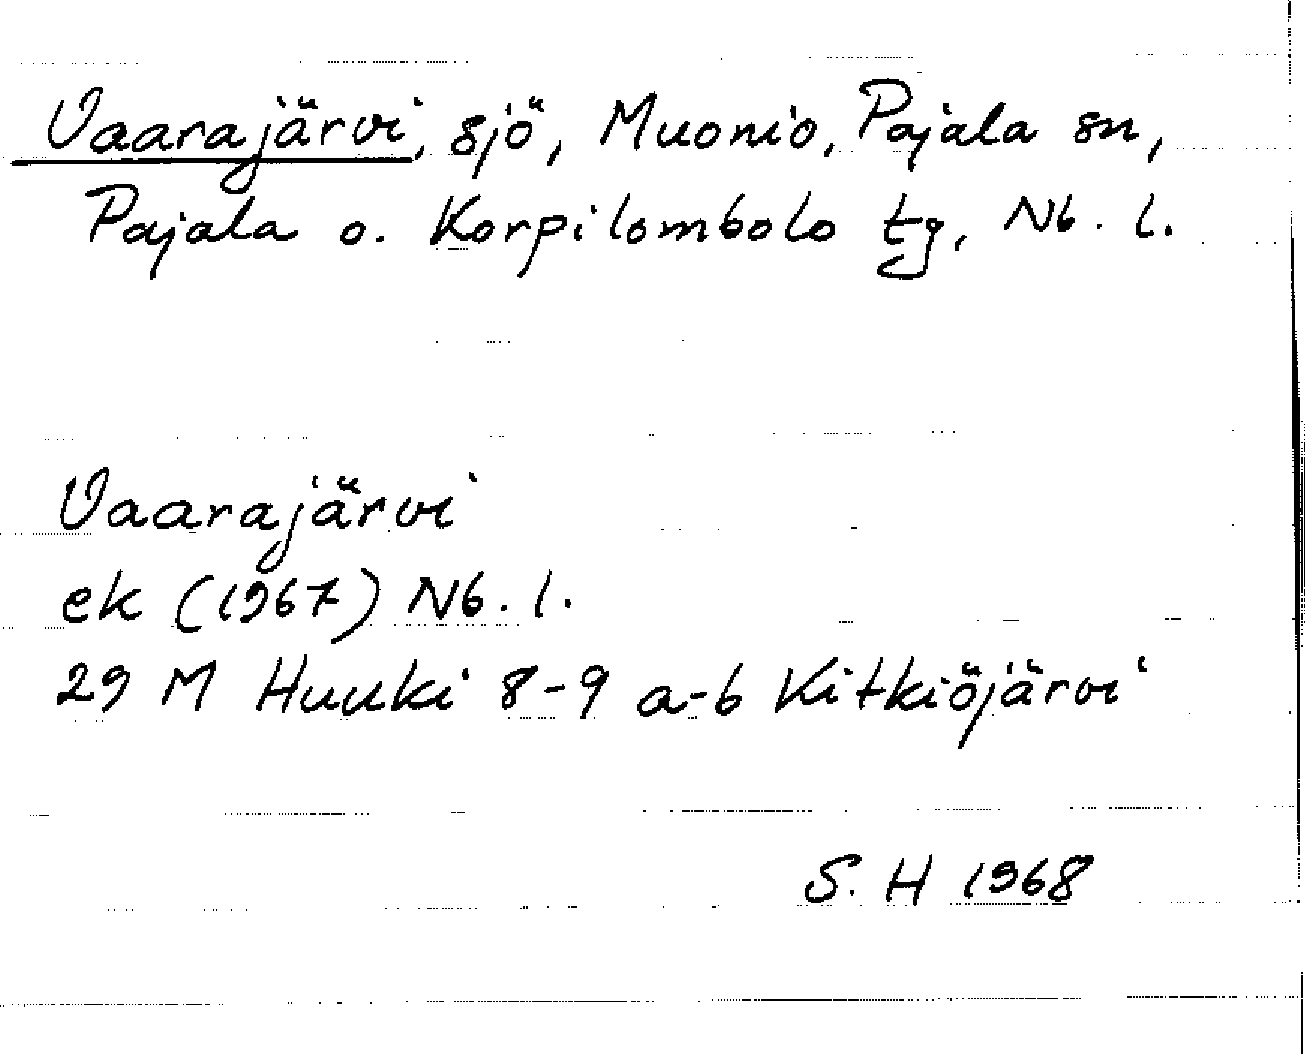 Vaarajärvi, sjö, Muonio, Pajala sn,
Pajala o. Korpilombolo tg, Nb. l.
Vaarajärvi
ek (1967) Nb. l.
29 M Huuki 8-9 a-b Kitkiöjärvi
S. H 1968